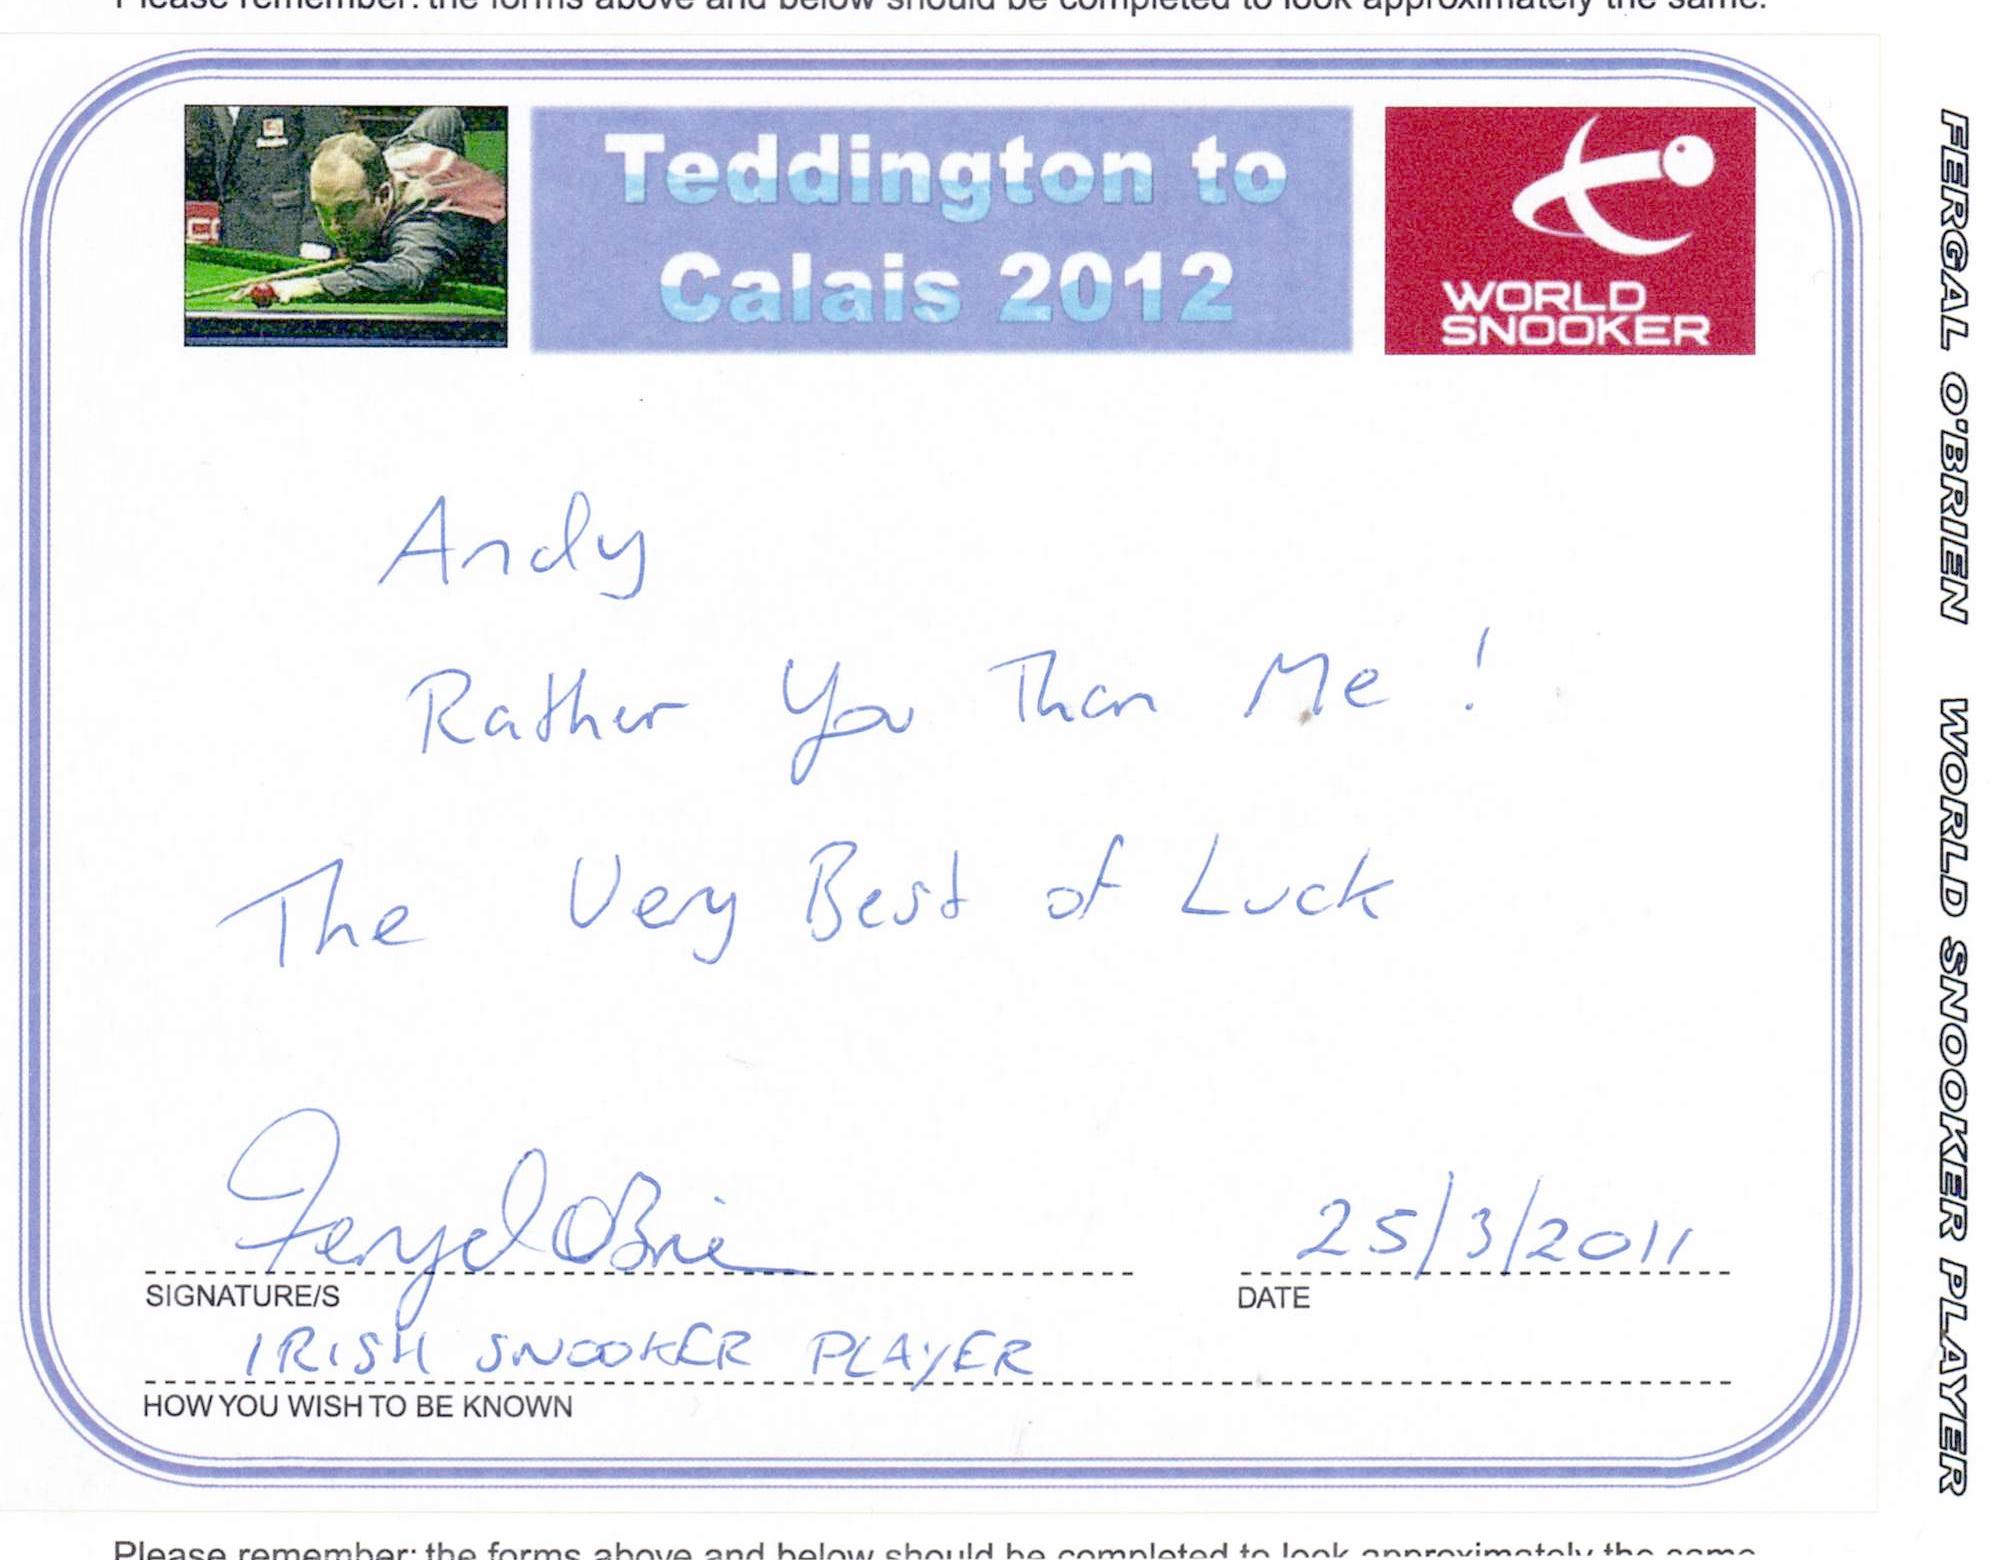 Please remember: the forms above and below should be completed to look approximately the same.
Teddington to
Calais 2012
WORLD
SNOOKER
Andy
Rather You Than Me !
The Very Best of Luck
Fergal O'Brien
25/3/2011
SIGNATURE/S
DATE
IRISH SNOOKER PLAYER
HOW YOU WISH TO BE KNOWN
Please remember: the forms above and below should be completed to look approximately the same
FERGAL O'BRIEN WORLD SNOOKER PLAYER